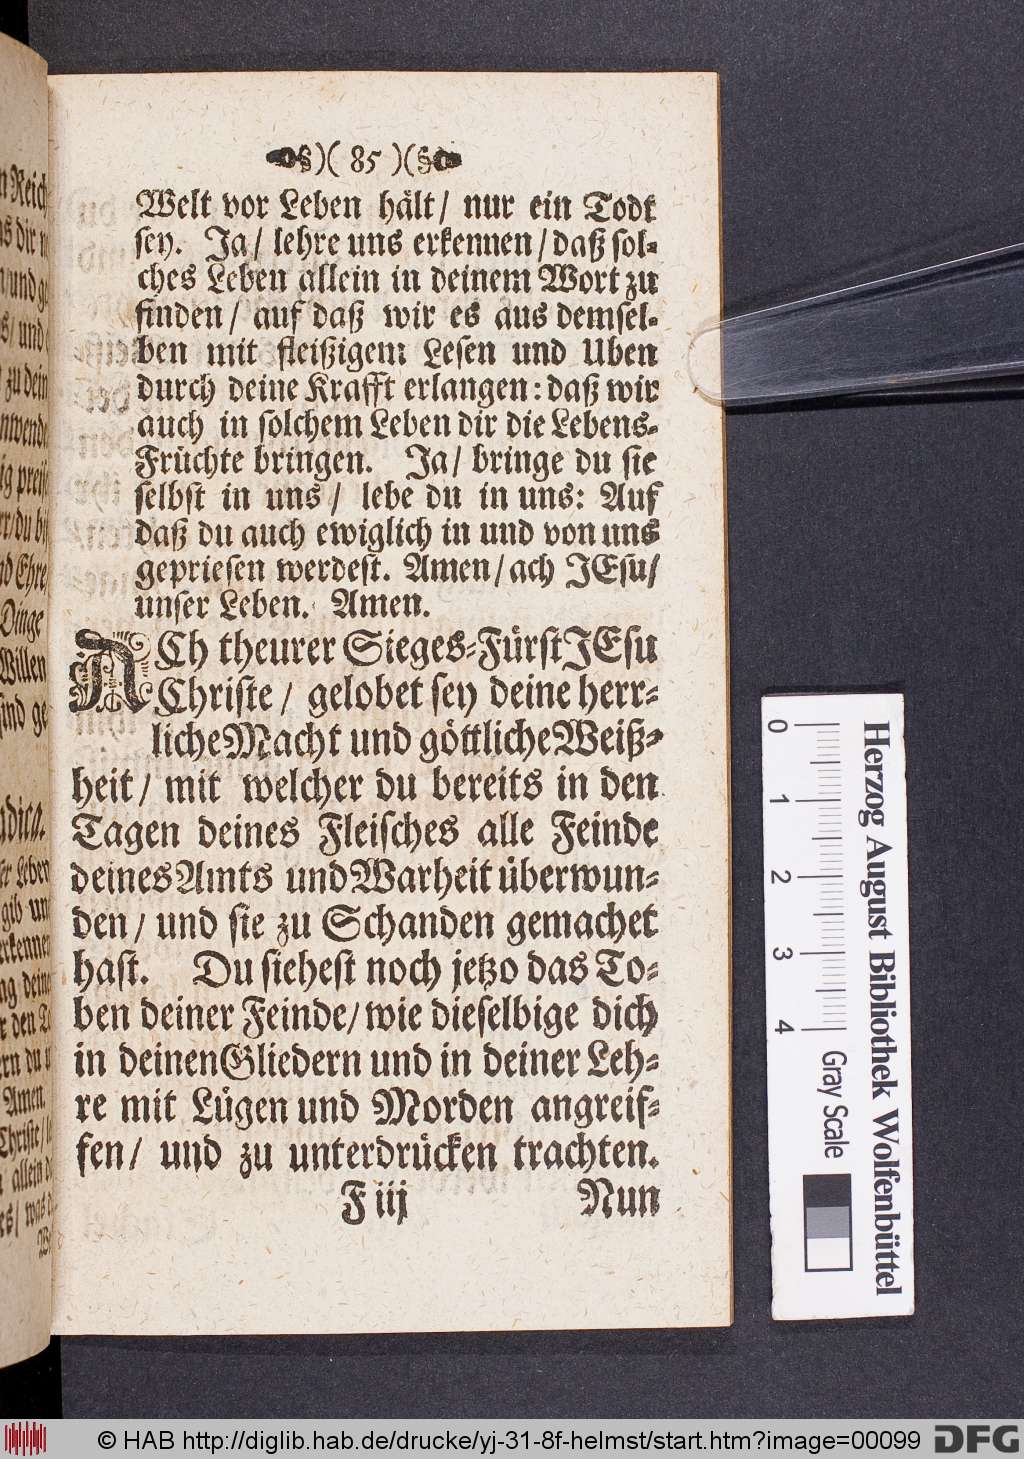 )( 85 )(
Welt vor Leben hält/ nur ein Todt
sey. Ja/ lehre uns erkennen/ daß sol-
ches Leben allein in deinem Wort zu
finden/ auf daß wir es aus demsel-
ben mit fleißigem Lesen und Uben
durch deine Krafft erlangen: daß wir
auch in solchem Leben dir die Lebens-
Früchte bringen. Ja/ bringe du sie
selbst in uns/ lebe du in uns: Auf
daß du auch ewiglich in und von uns
gepriesen werdest. Amen/ ach JEsu/
unser Leben. Amen.
ACh theurer Sieges-Fürst JEsu
Christe/ gelobet sey deine herr-
liche Macht und göttliche Weiß-
heit/ mit welcher du bereits in den
Tagen deines Fleisches alle Feinde
deines Amts und Warheit überwun-
den/ und sie zu Schanden gemachet
hast. Du siehest noch jetzo das To-
ben deiner Feinde/ wie dieselbige dich
in deinen Gliedern und in deiner Leh-
re mit Lügen und Morden angreif-
fen/ und zu unterdrücken trachten.
F iij Nun
n Reich
und
zu dein
Ehre/
Dinge
Willen
sind ge
gib un
erkennen
ng deine
Amen.
Christe/
allein
0 1 2 3 4
Gray Scale
Herzog August Bibliothek Wolfenbüttel
© HAB http://diglib.hab.de/drucke/yj-31-8f-helmst/start.htm?image=00099
DFG